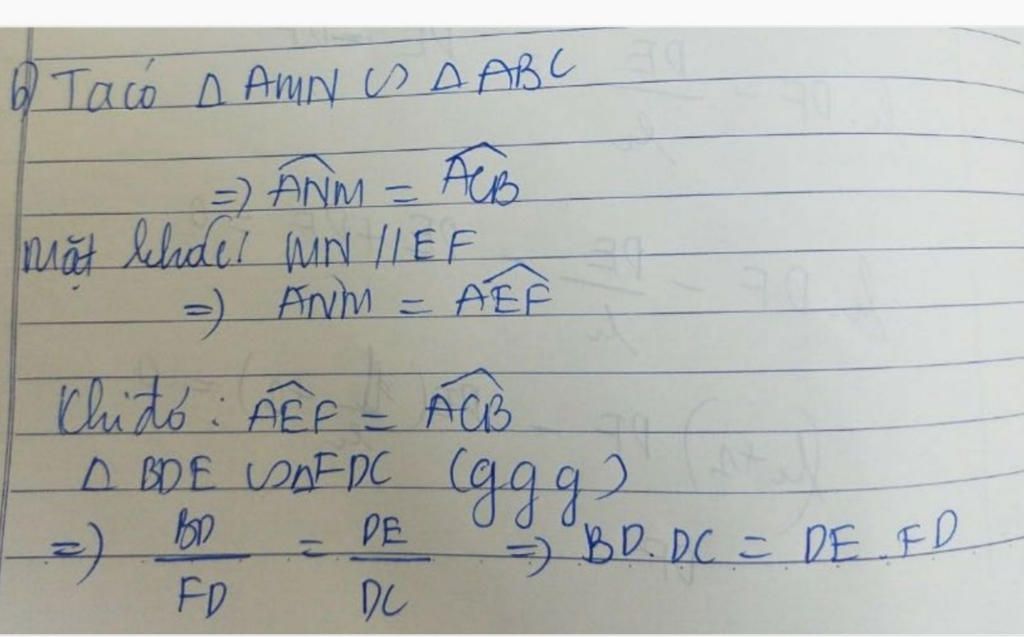 b) Ta có △ AMN ∽ △ ABC
=> \widehat{ANM} = \widehat{ACB}
Mặt khác MN // EF
=> ANM = \widehat{AEF}
Khi đó : \widehat{AEF} = \widehat{ACB}
△ BDE ∽ △FDC (ggg)
=> BD/FD = DE/DC => BD.DC = DE.FD